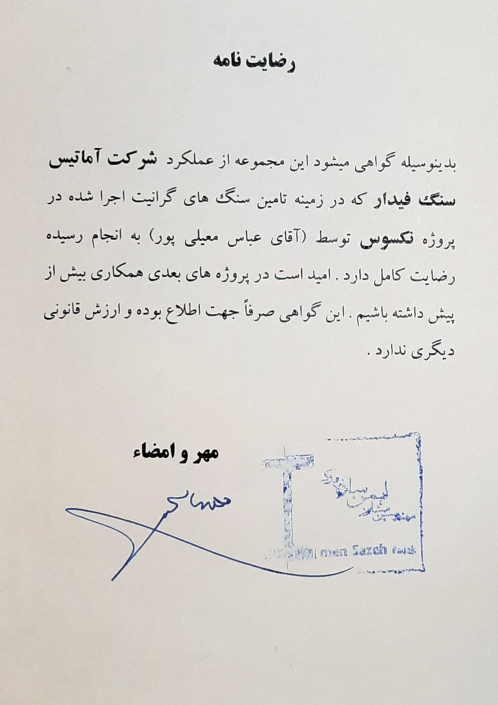 رضایت نامه
بدینوسیله گواهی میشود این مجموعه از عملکرد شرکت آماتیس
سنگ فیدار که در زمینه تامین سنگ های گرانیت اجرا شده در
پروژه نکسوس توسط (آقای عباس معیلی پور) به انجام رسیده
رضایت کامل دارد . امید است در پروژه های بعدی همکاری بیش از
پیش داشته باشیم . این گواهی صرفاً جهت اطلاع بوده و ارزش قانونی
دیگری ندارد .
مهر و امضاء
men Sazeh